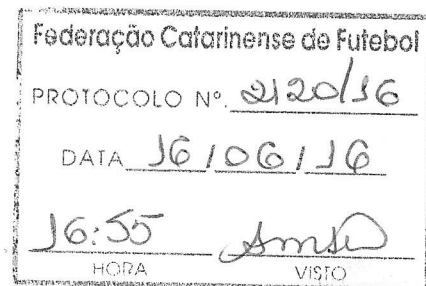 Federação Catarinense de Futebol
PROTOCOLO Nº. 2120/16
DATA 16/06/16
16:55
HORA VISTO